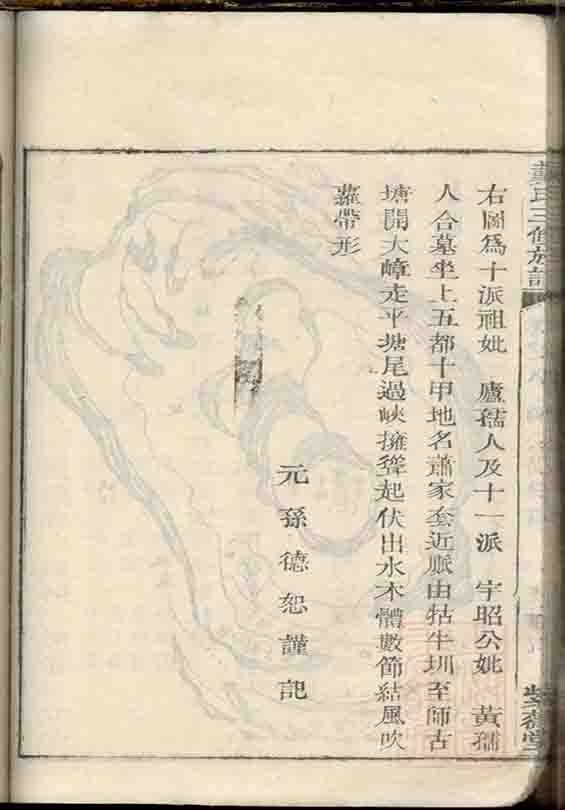 右圖爲十派祖妣　廬孺人及十一派　宇昭公妣　黃孺
人合墓坐上五都十甲地名蕭家套近脈由牯牛圳至師古
塘開大嶂走平塘尾過峽擁聳起伏出水木體數節結風吹
蘿帶形
元孫德恕謹記
氏三修族譜